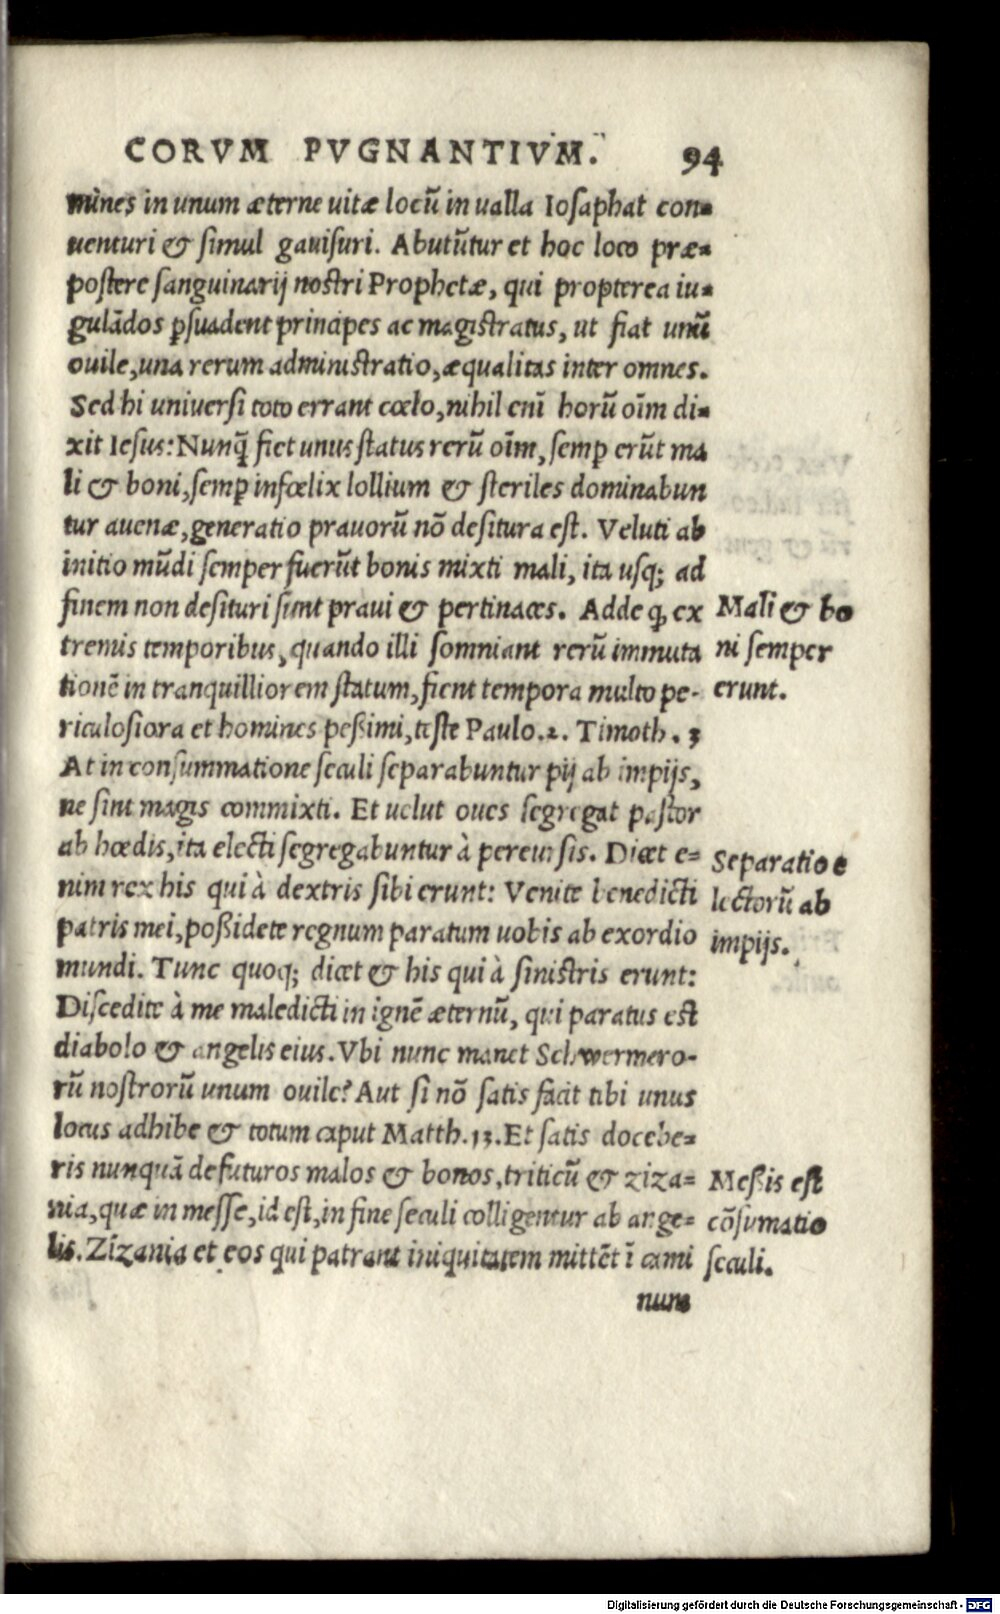 CORVM PVGNANTIVM. 94
mines in unum æterne uitæ locũ in ualla Iosaphat con=
uenturi & simul gauisuri. Abutũtur et hoc loco præ=
postere sanguinarij nostri Prophetæ, qui propterea iu=
gulãdos ꝑsuadent principes ac magistratus, ut fiat unũ
ouile, una rerum administratio, æqualitas inter omnes.
Sed hi uniuersi toto errant cœlo, nihil enĩ horũ oĩm di=
xit Iesus: Nunq̃ fiet unus status rerũ oĩm, semꝑ erũt ma
li & boni, semꝑ infœlix lollium & steriles dominabun
tur auenæ, generatio prauorũ nõ desitura est. Veluti ab
initio mũdi semper fuerũt bonis mixti mali, ita usq; ad
finem non desituri sunt praui & pertinaces. Adde ꝙ ex
tremis temporibus, quando illi somniant rerũ immuta
tionẽ in tranquilliorem statum, fient tempora multo pe-
riculosiora et homines peßimi, teste Paulo .2. Timoth. 3
At in consummatione seculi separabuntur pij ab impijs,
ne sint magis commixti. Et uelut oues segregat pastor
ab hœdis, ita electi segregabuntur à peruersis. Dicet e=
nim rex his qui à dextris sibi erunt: Venite benedicti
patris mei, poßidete regnum paratum uobis ab exordio
mundi. Tunc quoq; dicet & his qui à sinistris erunt:
Discedite à me maledicti in ignẽ æternũ, qui paratus est
diabolo & angelis eius. Vbi nunc manet Schwermero-
rũ nostrorũ unum ouile? Aut si nõ satis facit tibi unus
locus adhibe & totum caput Matth. 13. Et satis docebe=
ris nunquã defuturos malos & bonos, triticũ & ziza=
nia, quæ in messe, id est, in fine seculi colligentur ab ange=
lis. Zizania et eos qui patrant iniquitatem mittẽt ĩ cami
num
Mali & bo
ni semper
erunt.
Separatio e
lectorũ ab
impijs.
Meßis est
cõsumatio
seculi.
Digitalisierung gefördert durch die Deutsche Forschungsgemeinschaft - DFG